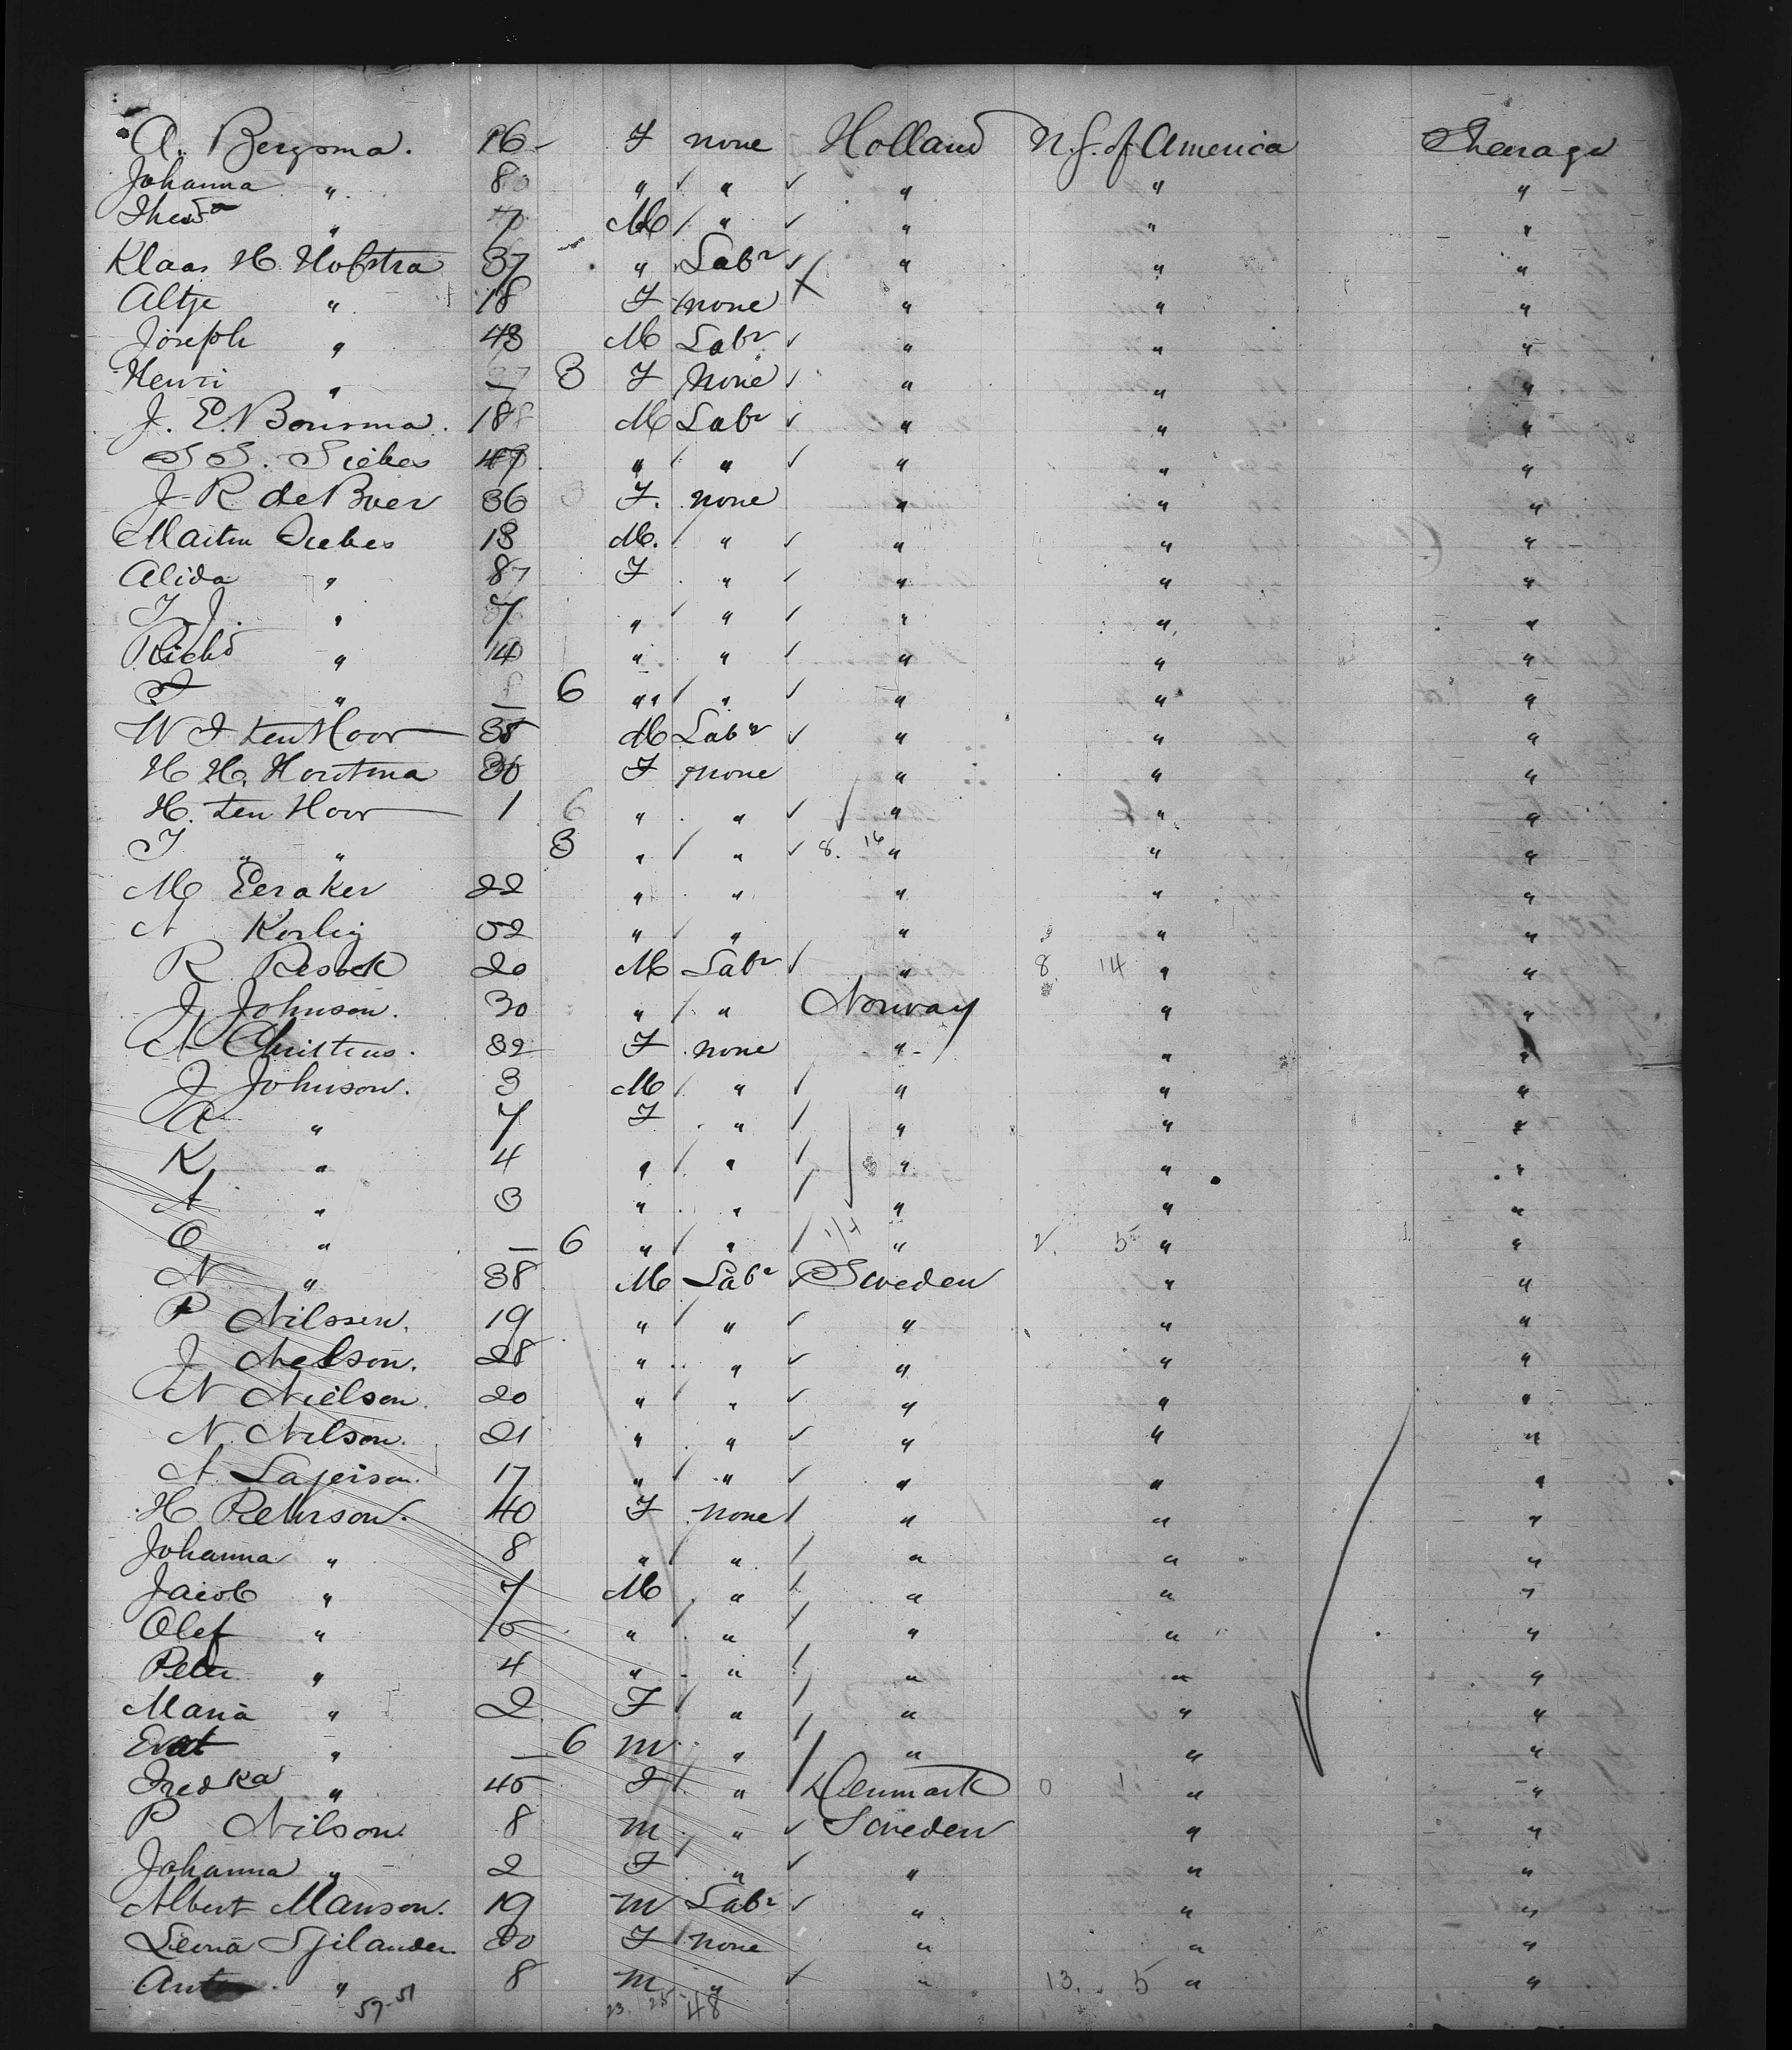 A. Bergsma. 16 F none Holland U.S. of America Steerage
Johanna " 8 " " " " "
Theod " 7 M " " " "
Klaas H. Hofstra 37 " Labr " " "
Altje " 18 F none " " "
Joseph " 43 M Labr " " "
Henri " — 3 F None " " "
J. E. Bousma. 18 M Labr " " "
S S. Siebes 49 " " " " "
J R de Boer 36 F. none " " "
Martin Siebes 13 M. " " " "
Alida " 8 F " " " "
T. J. " 7 " " " " "
Richd " 4 " " " " "
T " — 6 " " " " "
W J ten Hoor 38 M Labr " " "
H H. Houtma 30 F none " " "
H. ten Hoor 1 6 " " " " "
J " " 3 " " 8. 16 " " "
M Eeraker 22 " " " " "
A Korlig 52 " " " " "
R Resoek 20 M Labr " 8 14 " "
J Johnson. 30 " " Norway " "
A Christens. 32 F none " " "
J Johnson. 3 M " " " "
A " 7 F " " " "
K " 4 " " " " "
A " 3 " " " " "
O " — 6 " " 1/4 " 2. 5 " "
N " 38 M Labr Sweden " "
P Nilssen. 19 " " " " "
J Nelson. 28 " " " " "
N Nielson. 20 " " " " "
N. Nilson. 21 " " " " "
A Lajerson. 17 " " " " "
H Peterson. 40 F none " " "
Johanna " 8 " " " " "
Jacob " 7 M " " " "
Olef " 5 " " " " "
Peter " 4 " " " " "
Maria " 2 F " " " "
" — 6 M " " " "
Fredka " 45 F " Denmark 0 1 " "
P Nilson. 8 M " Sweden " "
Johanna " 2 F " " " "
Albert Manson. 19 M Labr " " "
Leona Sjilander. 20 F none " " "
" 8 M " " 13. 5 " "
57-51 23. 25 48